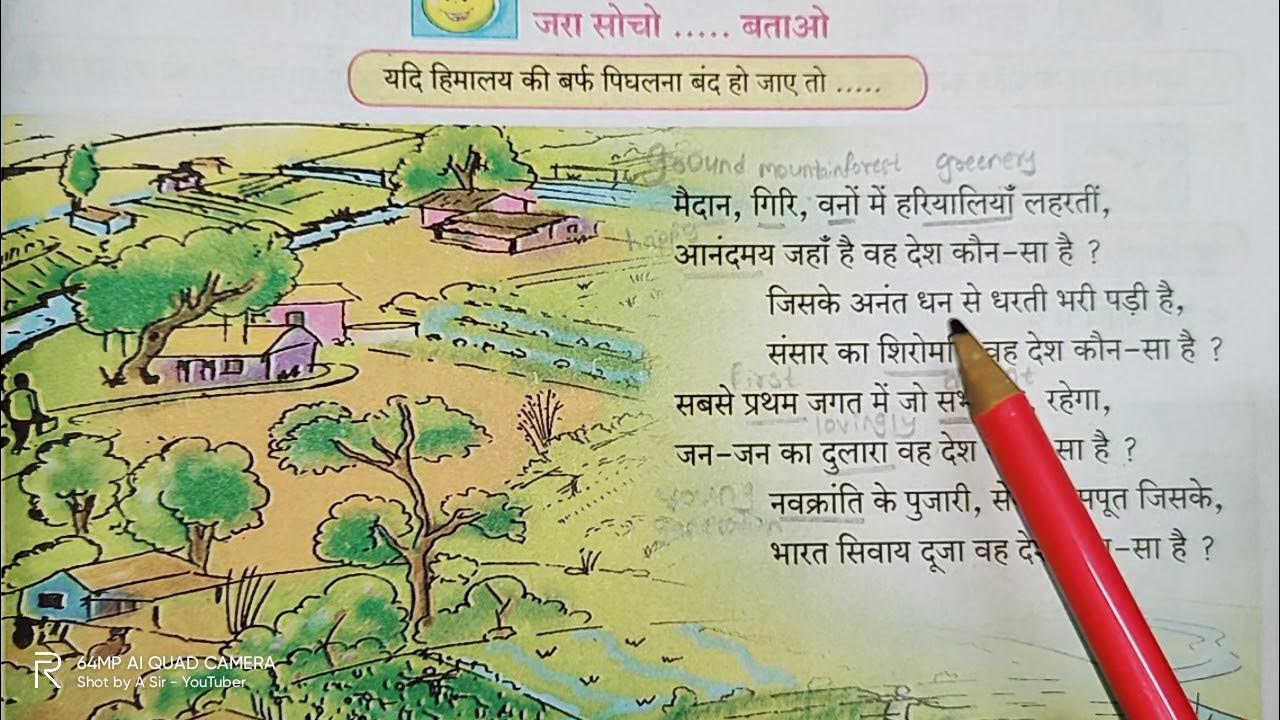 जरा सोचो ..... बताओ
यदि हिमालय की बर्फ पिघलना बंद हो जाए तो .....
ground mountain forest greenery
मैदान, गिरि, वनों में हरियालियाँ लहरतीं,
happy
आनंदमय जहाँ है वह देश कौन-सा है ?
जिसके अनंत धन से धरती भरी पड़ी है,
संसार का वह देश कौन-सा है ?
first
सबसे प्रथम जगत में जो रहेगा,
lovingly
जन-जन का दुलारा वह देश सा है ?
young
नवक्रांति के पुजारी, जिसके,
generation
भारत सिवाय दूजा वह -सा है ?
64MP AI QUAD CAMERA
Shot by A Sir - YouTuber